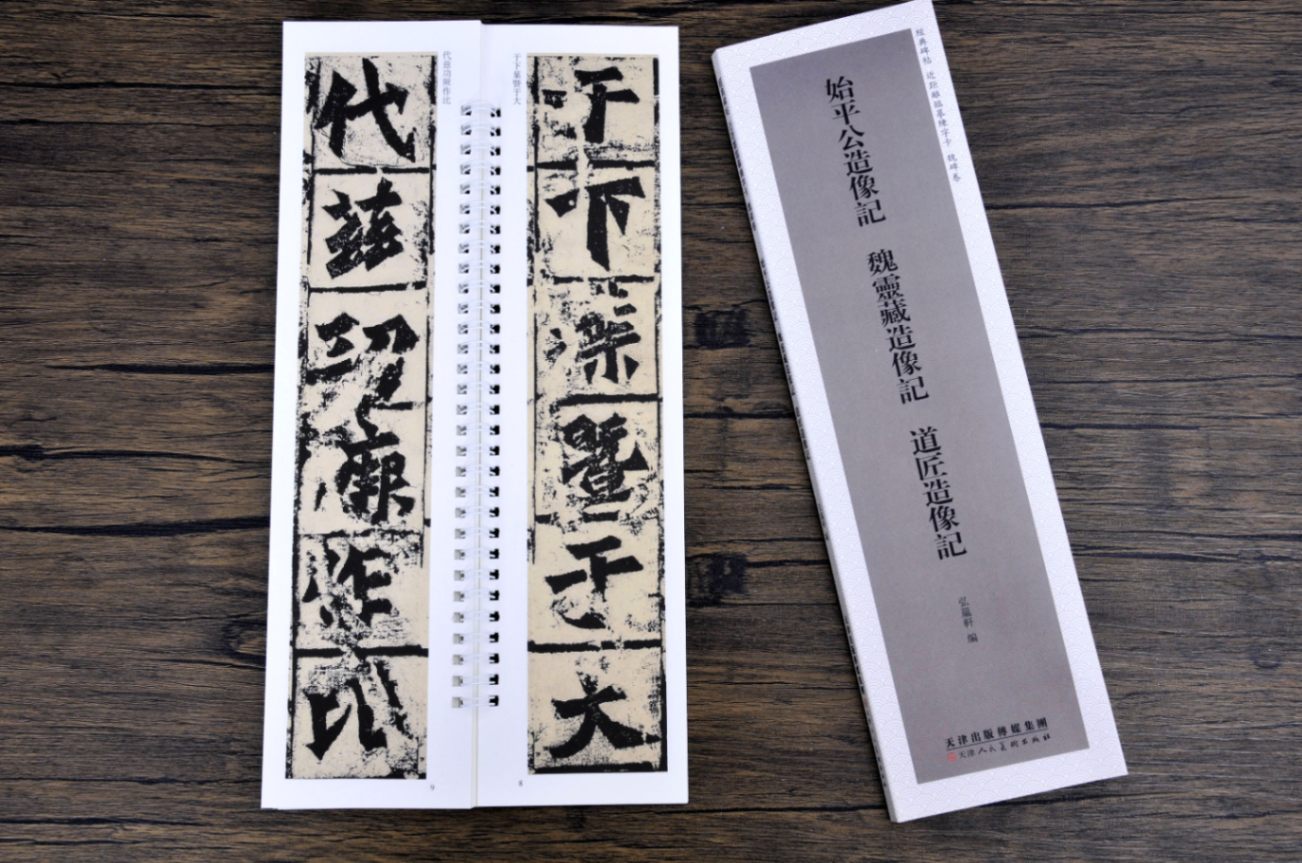 于下葉暨于大
于下葉暨于大
8
代茲功厥作比
代茲功厥作比
9
經典碑帖 近距離臨摹練字卡 魏碑卷
始平公造像記 魏靈藏造像記 道匠造像記
弘蘊軒 編
天津出版傳媒集團
天津人民美術出版社